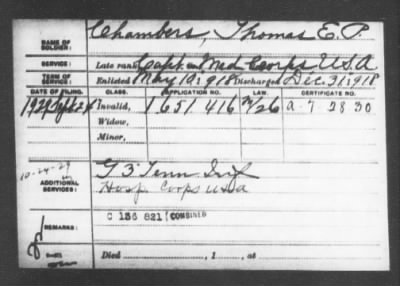 NAME OF SOLDIER: Chambers, Thomas E. P.
SERVICE: Late rank Capt Med Corps USA
TERM OF SERVICE: Enlisted May 10, 918 Discharged Dec. 31, 918
DATE OF FILING. CLASS. APPLICATION NO. LAW. CERTIFICATE NO.
Invalid, 1651 416 a-7 28 30
Widow,
Minor,
10-24-29
ADDITIONAL SERVICES: G 3" Tenn Inf
Hosp Corps USA
C 136 821 COMBINED
REMARKS:
Died , 1 , at